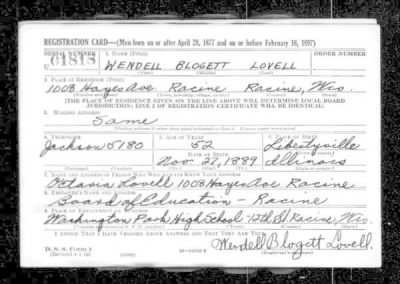 REGISTRATION CARD—(Men born on or after April 28, 1877 and on or before February 16, 1897)
SERIAL NUMBER 1. NAME (Print) ORDER NUMBER
U1818 WENDELL BLOGETT LOVELL
(First) (Middle) (Last)
2. PLACE OF RESIDENCE (Print)
1008 Hayes Ave. Racine Racine, Wis.
(Number and street) (Town, township, village, or city) (County) (State)
[THE PLACE OF RESIDENCE GIVEN ON THE LINE ABOVE WILL DETERMINE LOCAL BOARD
JURISDICTION; LINE 2 OF REGISTRATION CERTIFICATE WILL BE IDENTICAL]
3. MAILING ADDRESS
Same
4. TELEPHONE 5. AGE IN YEARS 6. PLACE OF BIRTH
Jackson 5180 52 Libertyville
DATE OF BIRTH
Nov. 27, 1889 Illinois
7. NAME AND ADDRESS OF PERSON WHO WILL ALWAYS KNOW YOUR ADDRESS
Octavia Lovell 1008 Hayes Ave Racine
8. EMPLOYER'S NAME AND ADDRESS
Board of Education - Racine
9. PLACE OF EMPLOYMENT OR BUSINESS
Washington Park High School - 12th St. Racine, Wis.
I AFFIRM THAT I HAVE VERIFIED ABOVE ANSWERS AND THAT THEY ARE TRUE.
D. S. S. Form 1
Wendell Blogett Lovell.
(Registrant's signature)